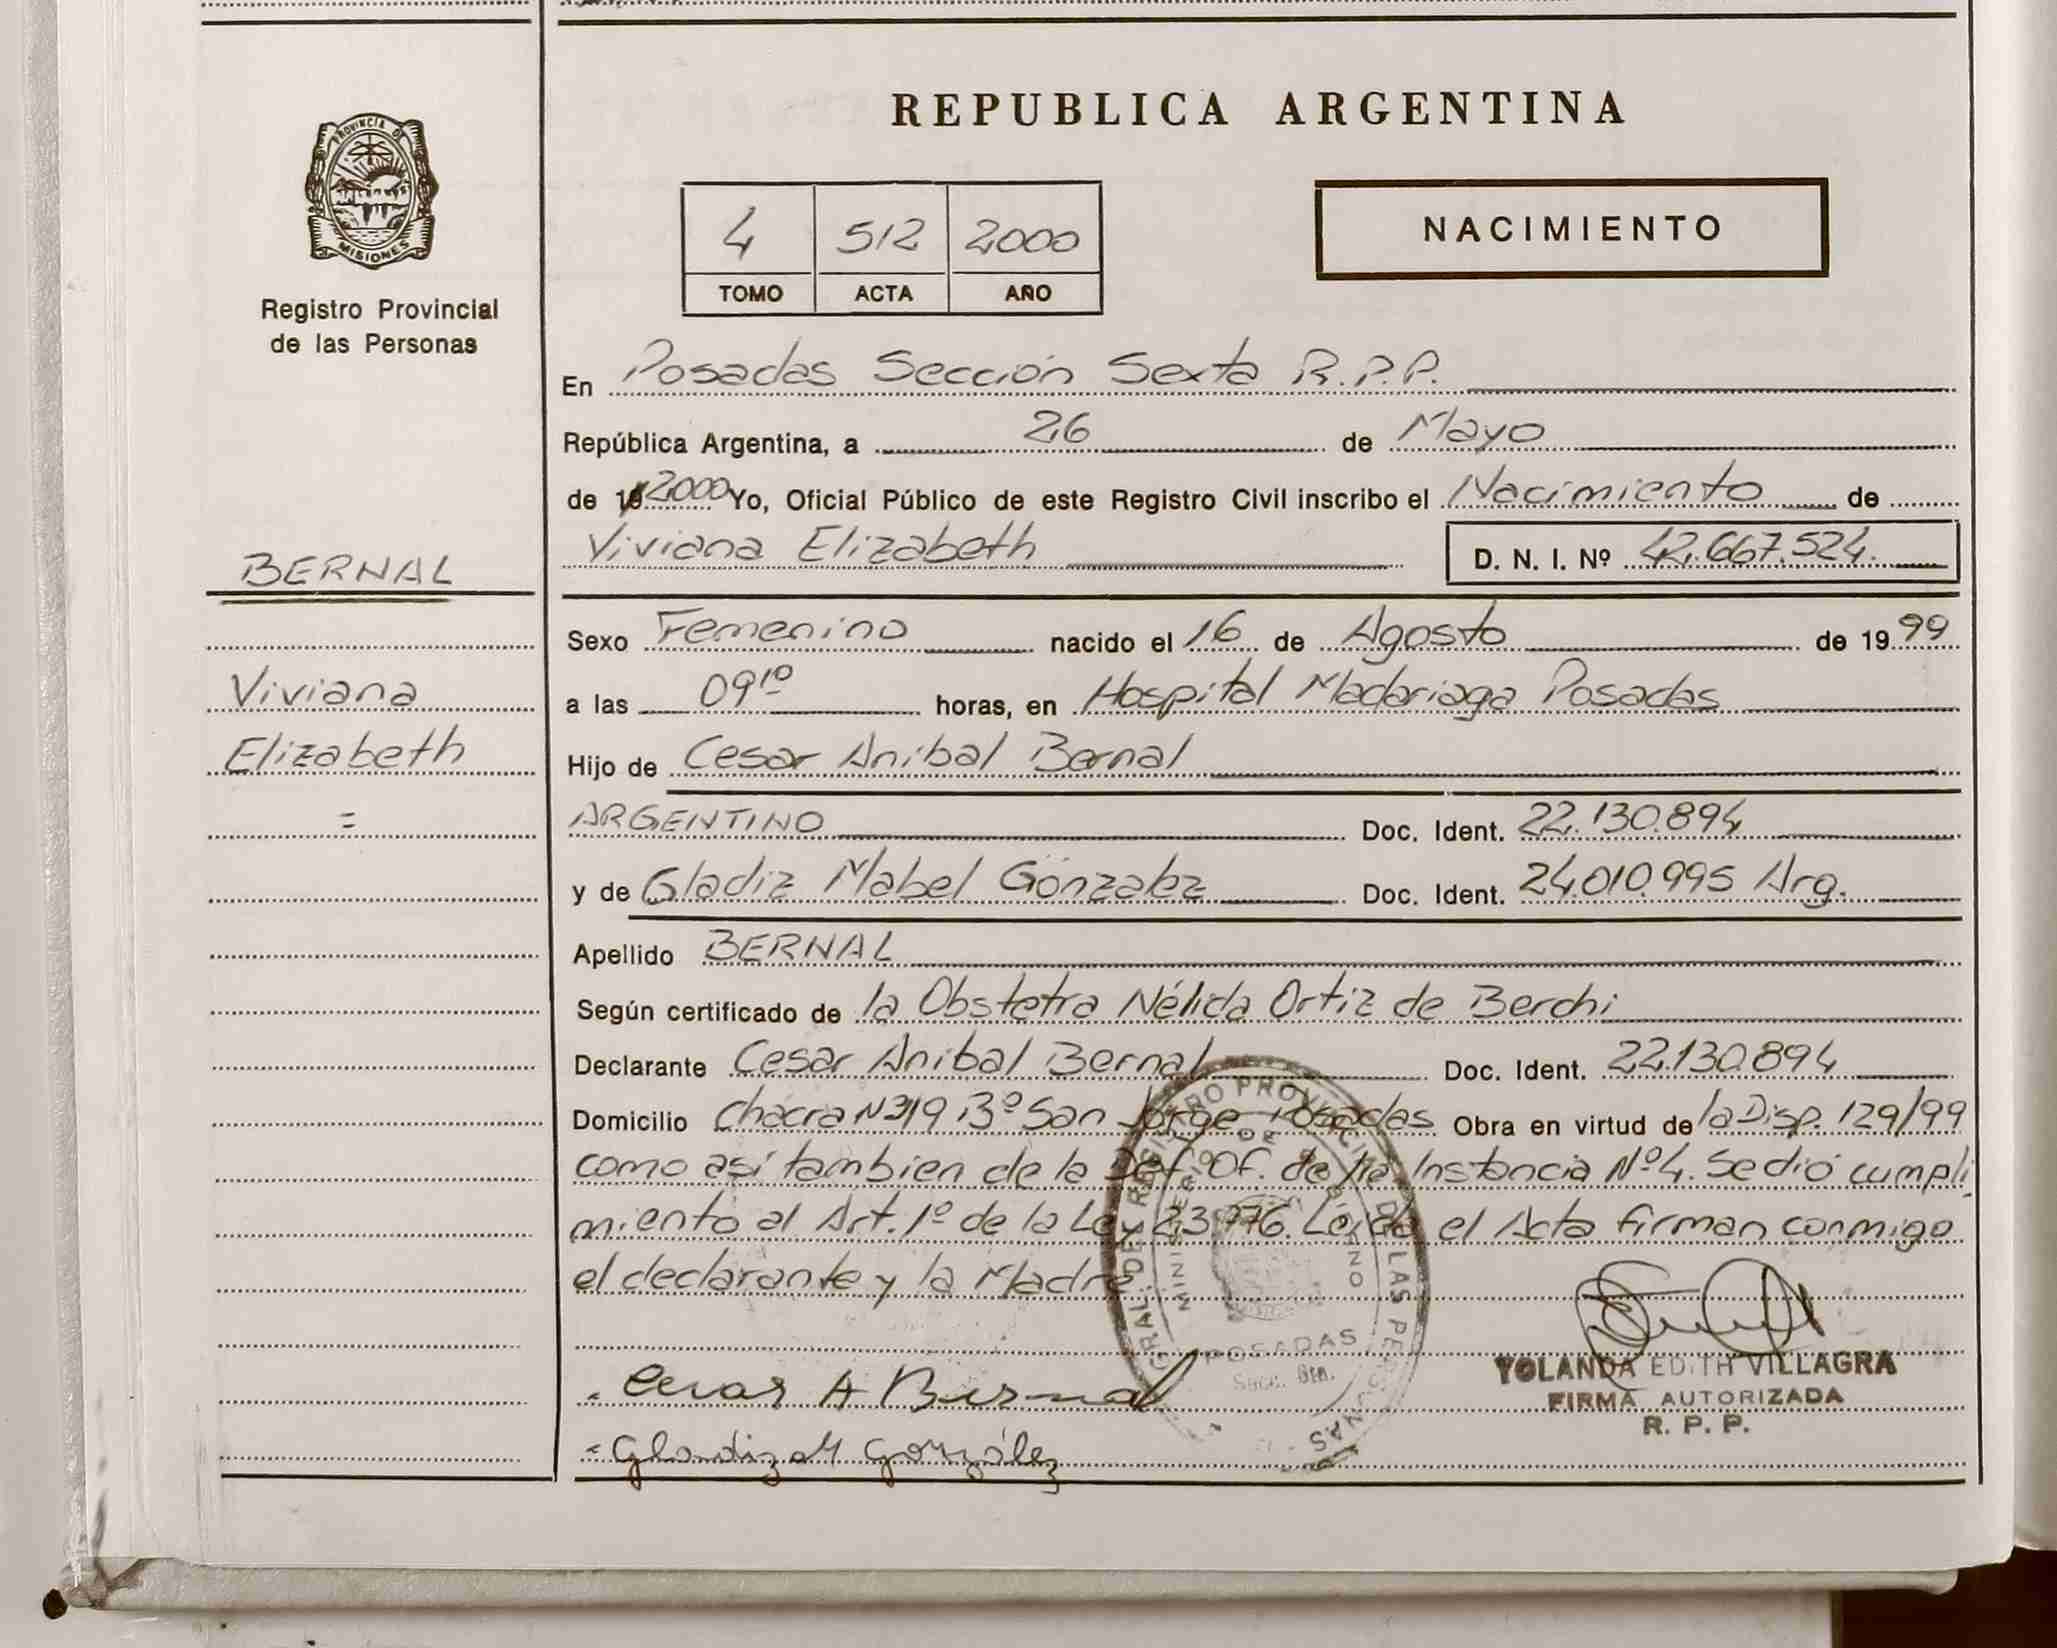 REPUBLICA ARGENTINA
PROVINCIA DE
MISIONES
Registro Provincial
de las Personas
4 512 2000
TOMO ACTA AÑO
NACIMIENTO
En Posadas Sección Sexta R.P.P.
República Argentina, a 26 de Mayo
de 19 2000 Yo, Oficial Público de este Registro Civil inscribo el Nacimiento de
Viviana Elizabeth D. N. I. Nº 42.667.524.
BERNAL
Viviana
Elizabeth
=
Sexo Femenino nacido el 16 de Agosto de 1999
a las 09¹⁰ horas, en Hospital Madariaga Posadas
Hijo de Cesar Anibal Bernal
ARGENTINO Doc. Ident. 22.130.894
y de Gladiz Mabel Gönzalez Doc. Ident. 24.010.995 Arg.
Apellido BERNAL
Según certificado de la Obstetra Nélida Ortiz de Berchi
Declarante Cesar Anibal Bernal Doc. Ident. 22.130.894
Domicilio Chacra N319 Bº San Jorge Posadas Obra en virtud de la Disp. 129/99
como asi tambien de la Def. Of. de Instancia Nº4. Se dió cumpli
miento al Art. 1º de la Ley 23.776. Leida el Acta firman conmigo
el declarante y la Madre
GRAL. DEL REGISTRO PROVINCIAL DE LAS PERSONAS
MINISTERIO DE GOBIERNO
POSADAS
Cesar A Bernal
YOLANDA EDITH VILLAGRA
FIRMA AUTORIZADA
R. P. P.
= Glandiz M González